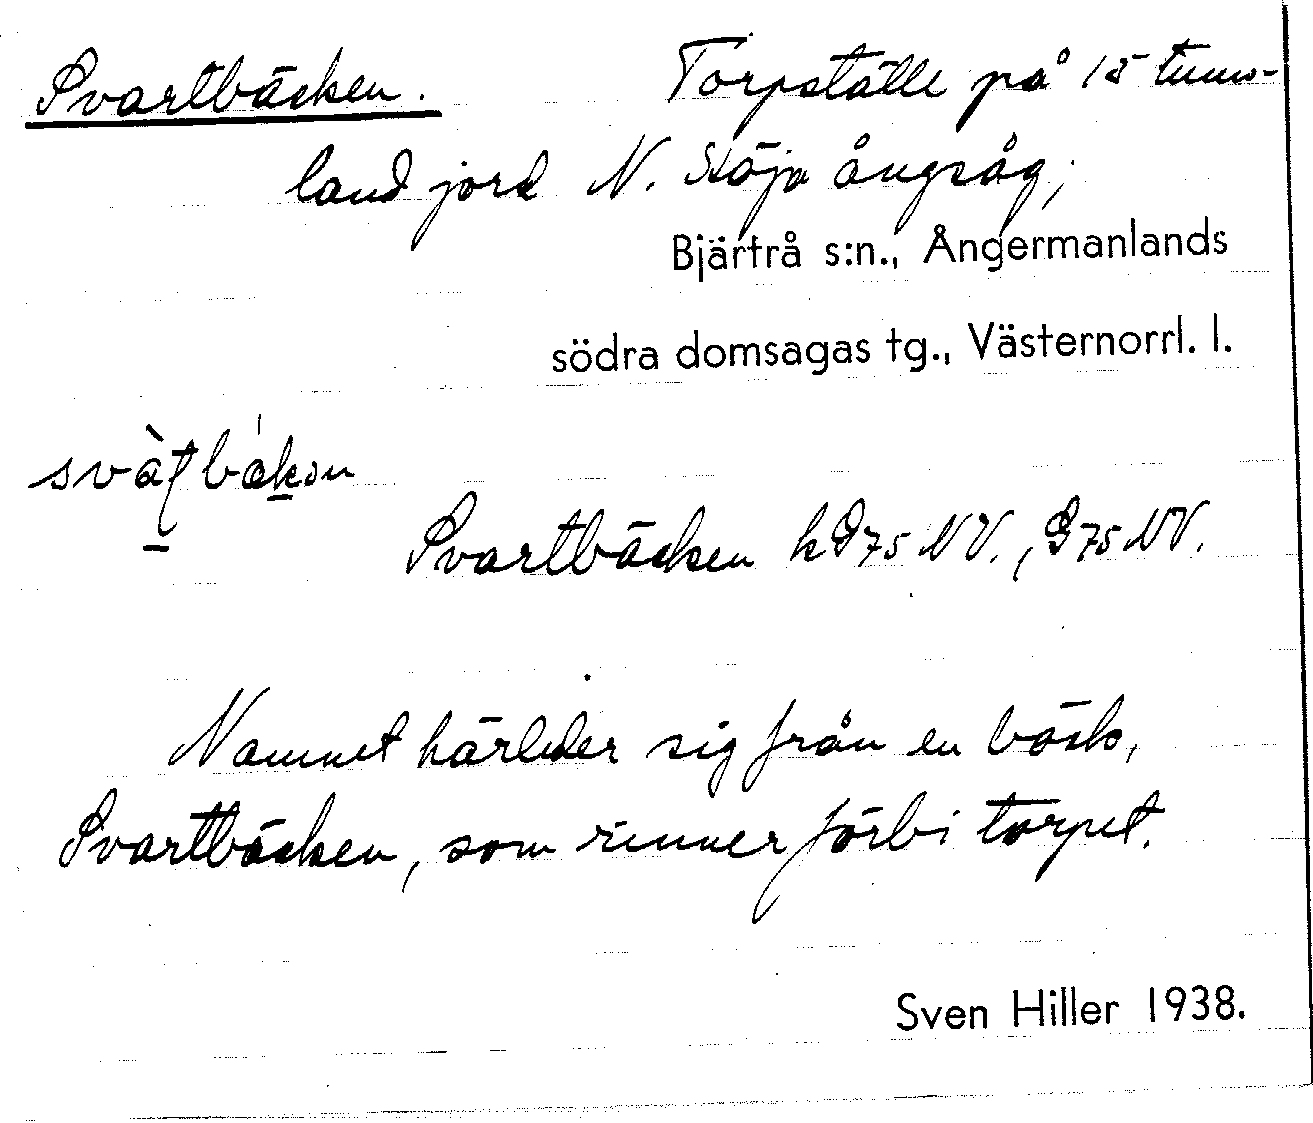 Svartbäcken. Torpställe på 15 tunn-
land jord N. Stöja ångsåg;
Bjärtrå s:n., Ångermanlands
södra domsagas tg., Västernorrl. l.
Svartbäcken k G75 NV., G75 NV.
Namnet härleder sig från en bäck,
Svartbäcken, som rinner förbi torpet.
Sven Hiller 1938.